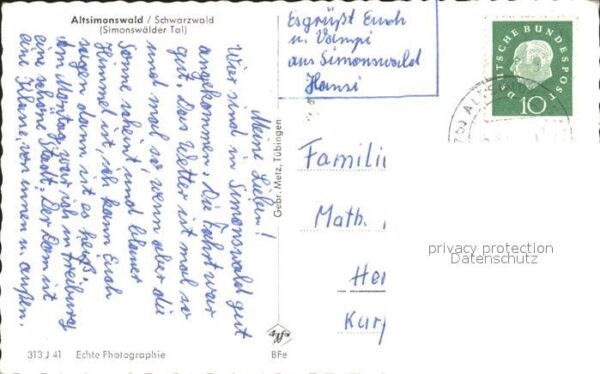 Altsimonswald / Schwarzwald
(Simonswälder Tal)
Meine Lieben!
Wir sind in Simonswald gut
angekommen. Die Fahrt war
gut. Das Wetter ist mal so
und mal so, wenn aber die
Sonne scheint und blauer
Himmel ist, ich kann Euch
sagen dann ist es heiß.
Am Montag war ich in Freiburg
eine schöne Stadt. Der Dom ist
eine Klasse, von innen u. außen.
313 J 41 Echte Photographie
Gebr. Metz, Tübingen
BFe
Es grüßt Euch
u. Vampi
aus Simonswald
Hansi
DEUTSCHE BUNDESPOST
10
Famili
Math.
Her
privacy protection
Datenschutz